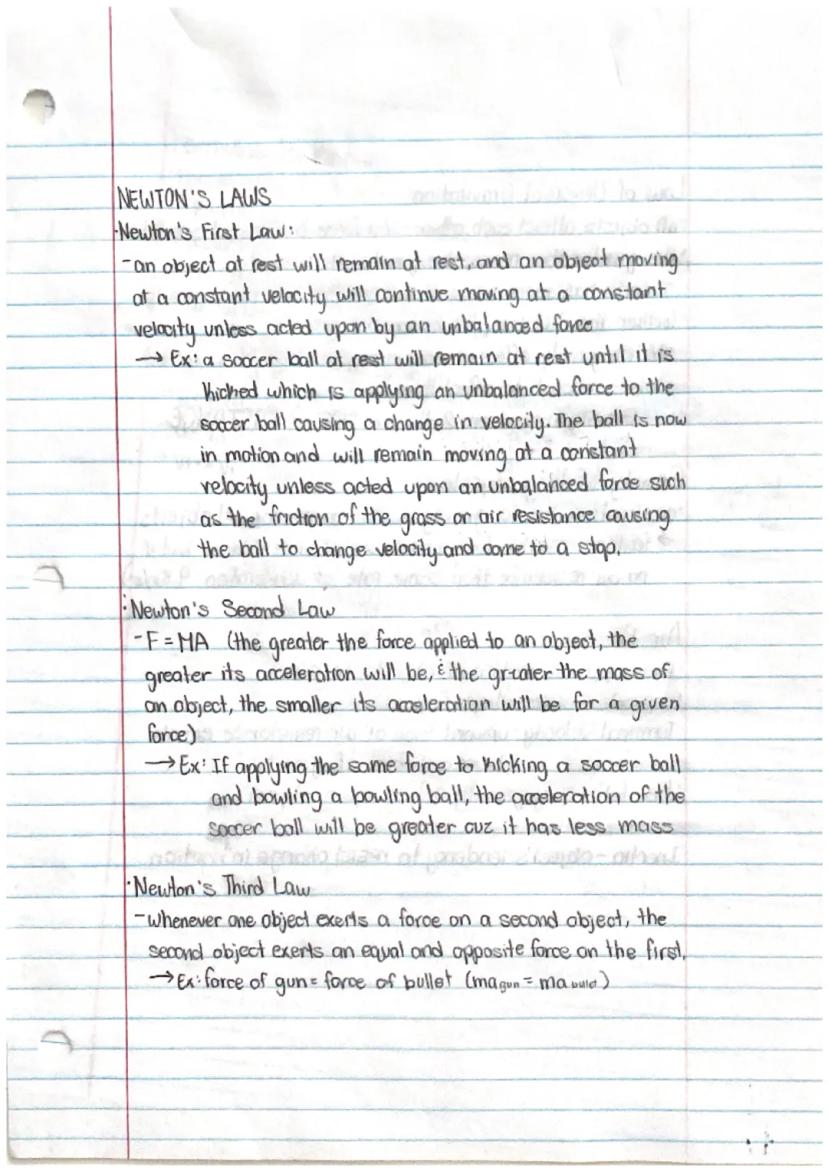 NEWTON'S LAWS
·Newton's First Law:
-an object at rest will remain at rest, and an object moving
at a constant velocity will continue moving at a constant
velocity unless acted upon by an unbalanced force
→ Ex: a soccer ball at rest will remain at rest until it is
kicked which is applying an unbalanced force to the
soccer ball causing a change in velocity. The ball is now
in motion and will remain moving at a constant
velocity unless acted upon an unbalanced force such
as the friction of the grass or air resistance causing
the ball to change velocity and come to a stop.
·Newton's Second Law
-F=MA (the greater the force applied to an object, the
greater its acceleration will be, & the greater the mass of
an object, the smaller its acceleration will be for a given
force)
→ Ex: If applying the same force to kicking a soccer ball
and bowling a bowling ball, the acceleration of the
soccer ball will be greater cuz it has less mass
·Newton's Third Law
-Whenever one object exerts a force on a second object, the
second object exerts an equal and opposite force on the first.
→ Ex: force of gun = force of bullet (ma gun = ma bullet)